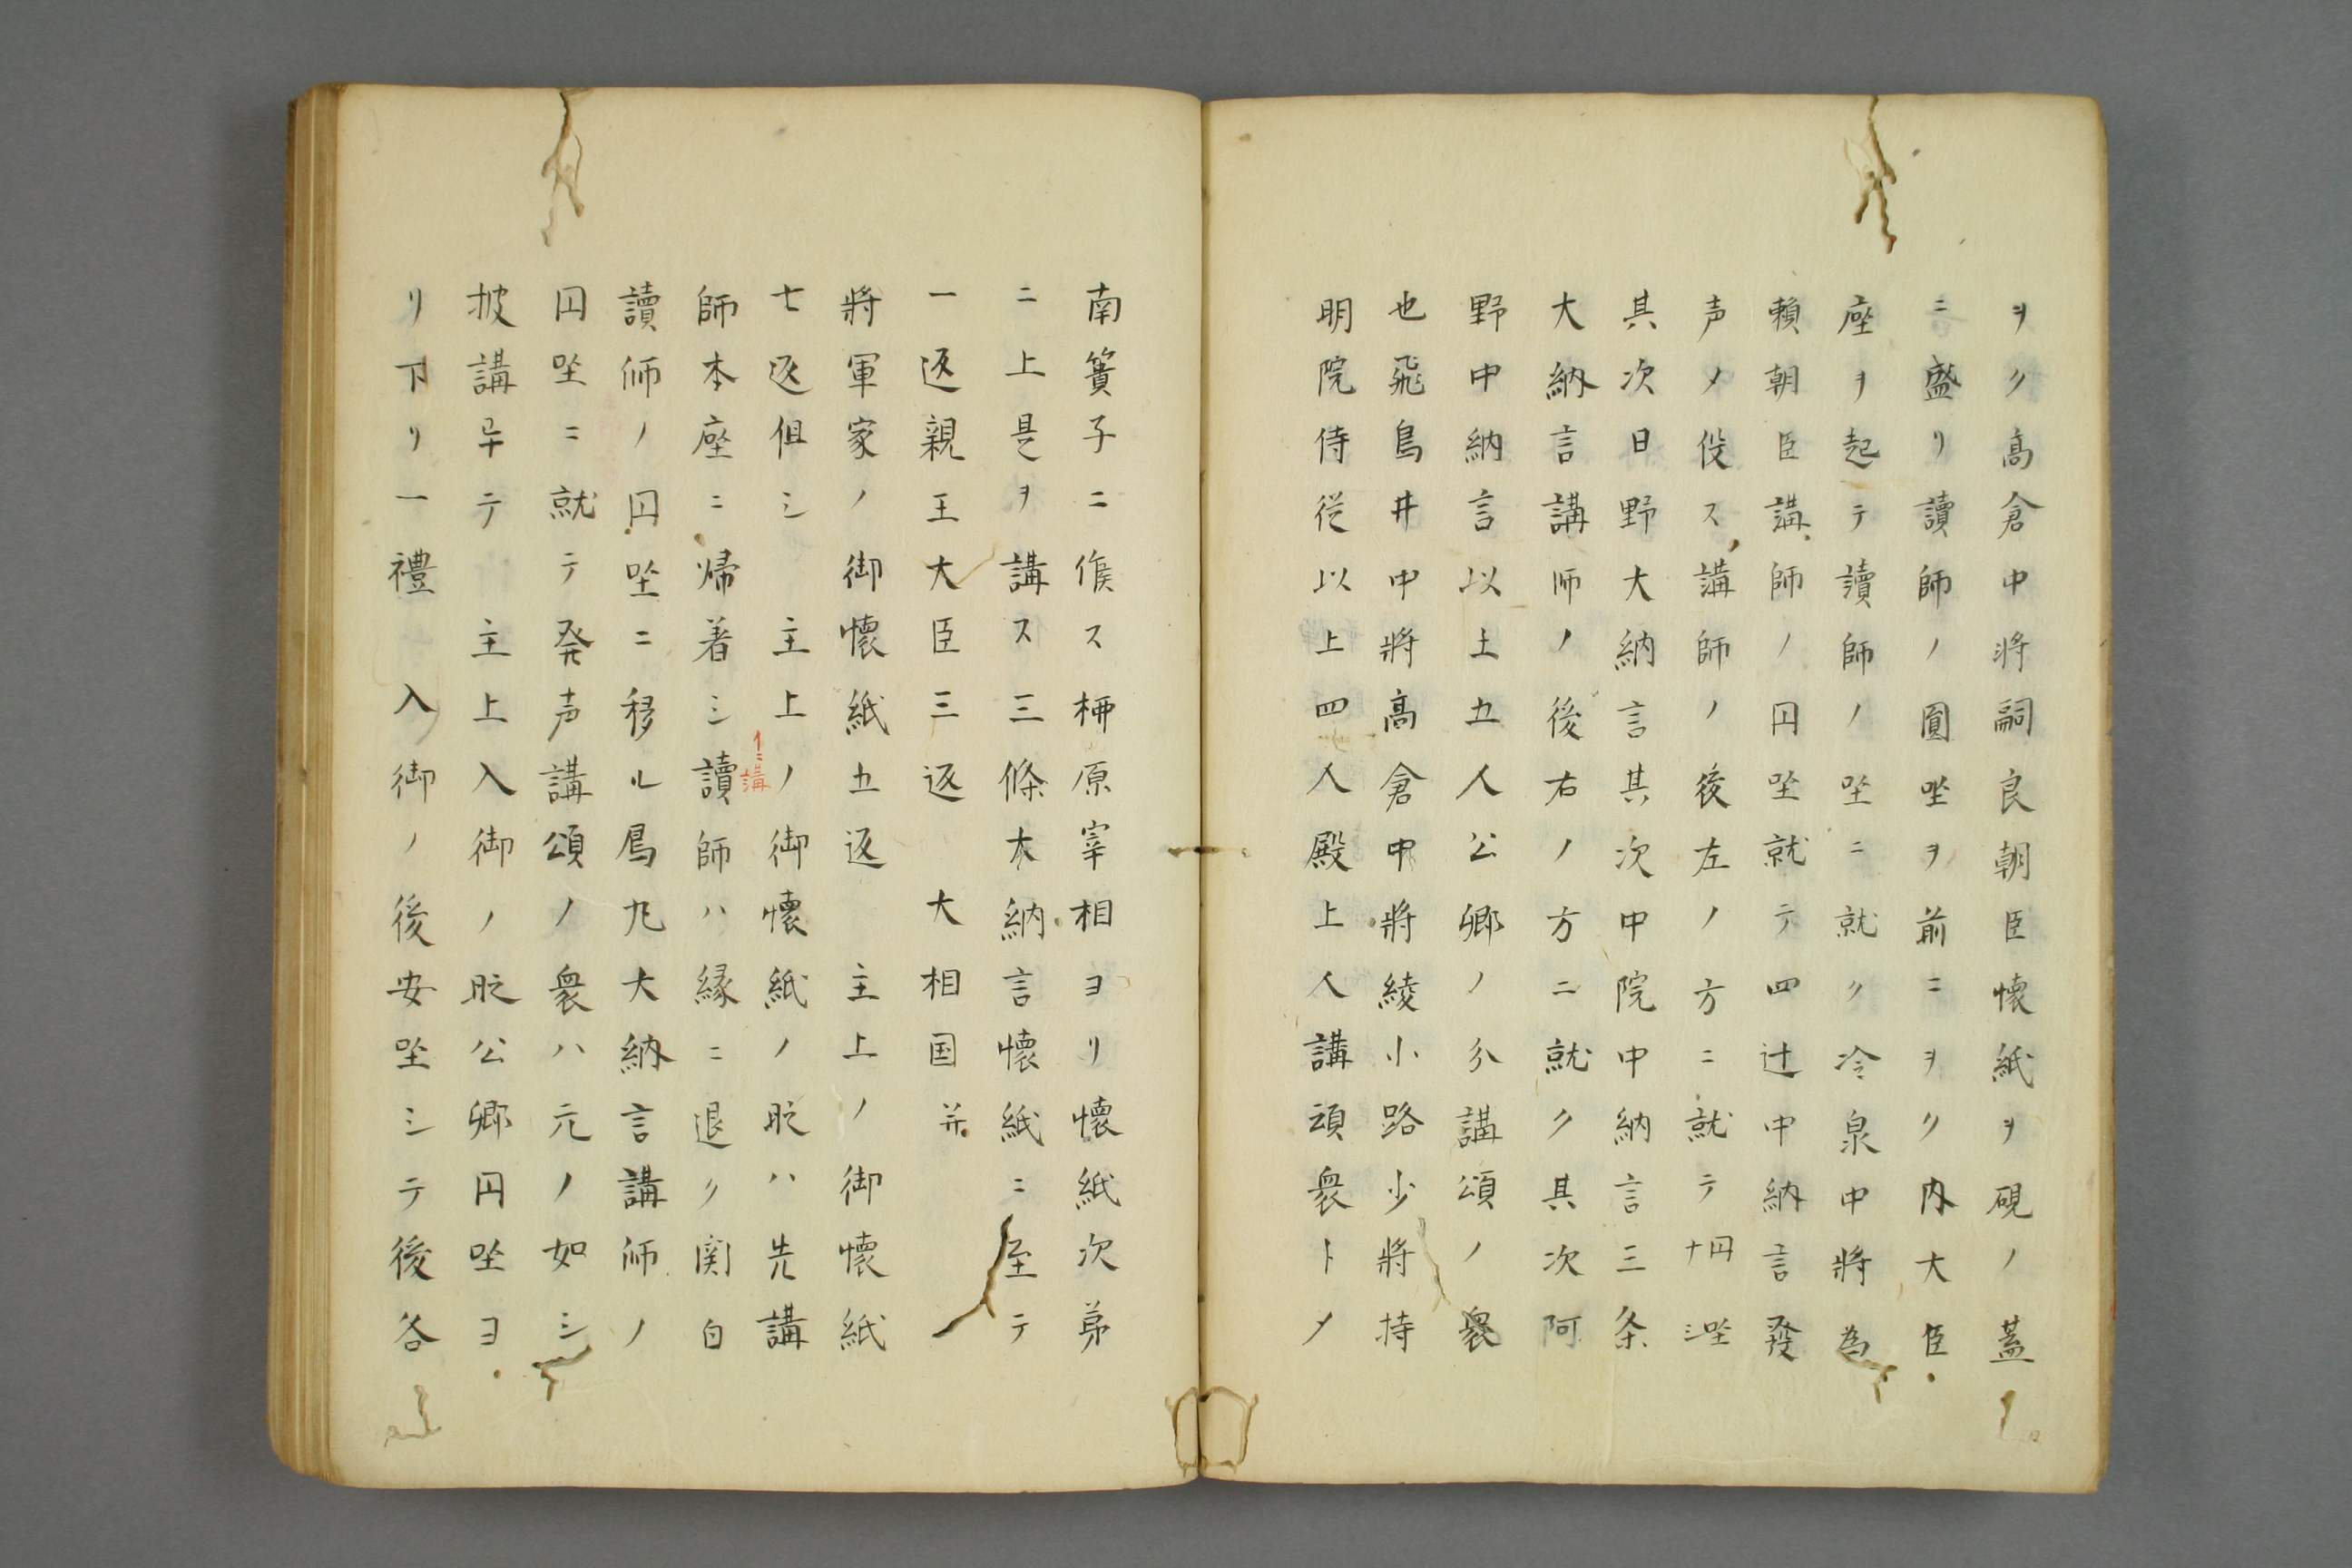 ヲク高倉中将嗣良朝臣懐紙ヲ硯ノ蓋
ニ盛リ讀師ノ圓坐ヲ前ニヲク内大臣
座ヲ起テ讀師ノ坐ニ就ク冷泉中將為
頼朝臣講師ノ円坐就テ四辻中納言發
声ノ役ス講師ノ後左ノ方ニ就テ円坐ナシ
其次日野大納言其次中院中納言三条
大納言講师ノ後右ノ方ニ就ク其次阿
野中納言以上五人公卿ノ分講頌ノ衆
也飛鳥井中將高倉中將綾小路少將持
明院侍従以上四人殿上人講頌衆トメ
南簀子ニ候ス柳原宰相ヨリ懐紙次苐
ニ上是ヲ講ス三條大納言懐紙ニ至テ
一返親王大臣三返 大相国并
將軍家ノ御懐紙五返 主上ノ御懐紙
七返但シ 主上ノ御懐紙ノ時ハ先講
師本座ニ帰着シ讀師ハ縁ニ退ク関白
イニ講
讀师ノ円坐ニ移ル烏丸大納言講师ノ
円坐ニ就テ発声講頌ノ衆ハ元ノ如シ
披講畢テ 主上入御ノ時公卿円坐ヨ
リ下リ一禮 入御ノ後安坐シテ後各